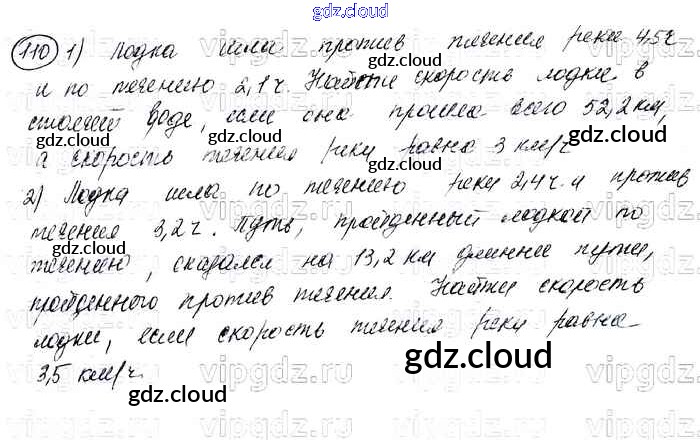 gdz.cloud
110 1) Лодка шла против течения реки 4,5 ч
и по течению 2,1 ч. Найти скорость лодки в
стоячей воде, если она прошла всего 52,2 км,
а скорость течения реки равна 3 км/ч
2) Лодка шла по течению реки 2,4 ч. и против
течения 3,2 ч. Путь, пройденный лодкой по
течению, оказался на 13,2 км длиннее пути,
пройденного против течения. Найти скорость
лодки, если скорость течения реки равна
3,5 км/ч.
gdz.cloud